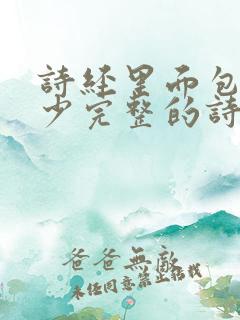 詩經里而包
少完整的詩
爸爸無敵
未經同意禁止搭我